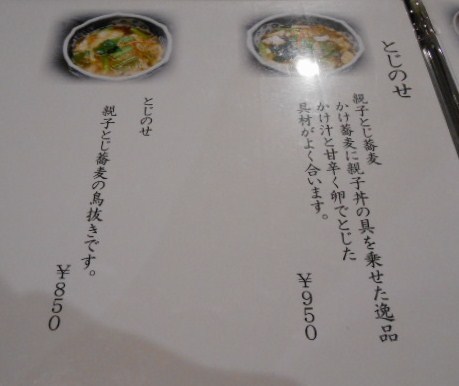 とじのせ
親子とじ蕎麦
かけ蕎麦に親子丼の具を乗せた逸品
かけ汁と甘辛く卵でとじた
具材がよく合います。
¥950
とじのせ
親子とじ蕎麦の鳥抜きです。
¥850